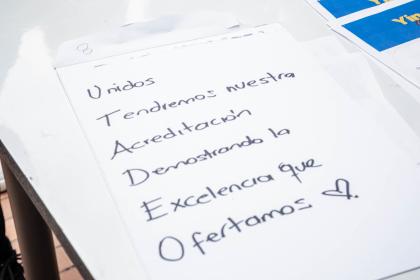 Unidos
Tendremos nuestra
Acreditación
Demostrando la
Excelencia que
Ofertamos